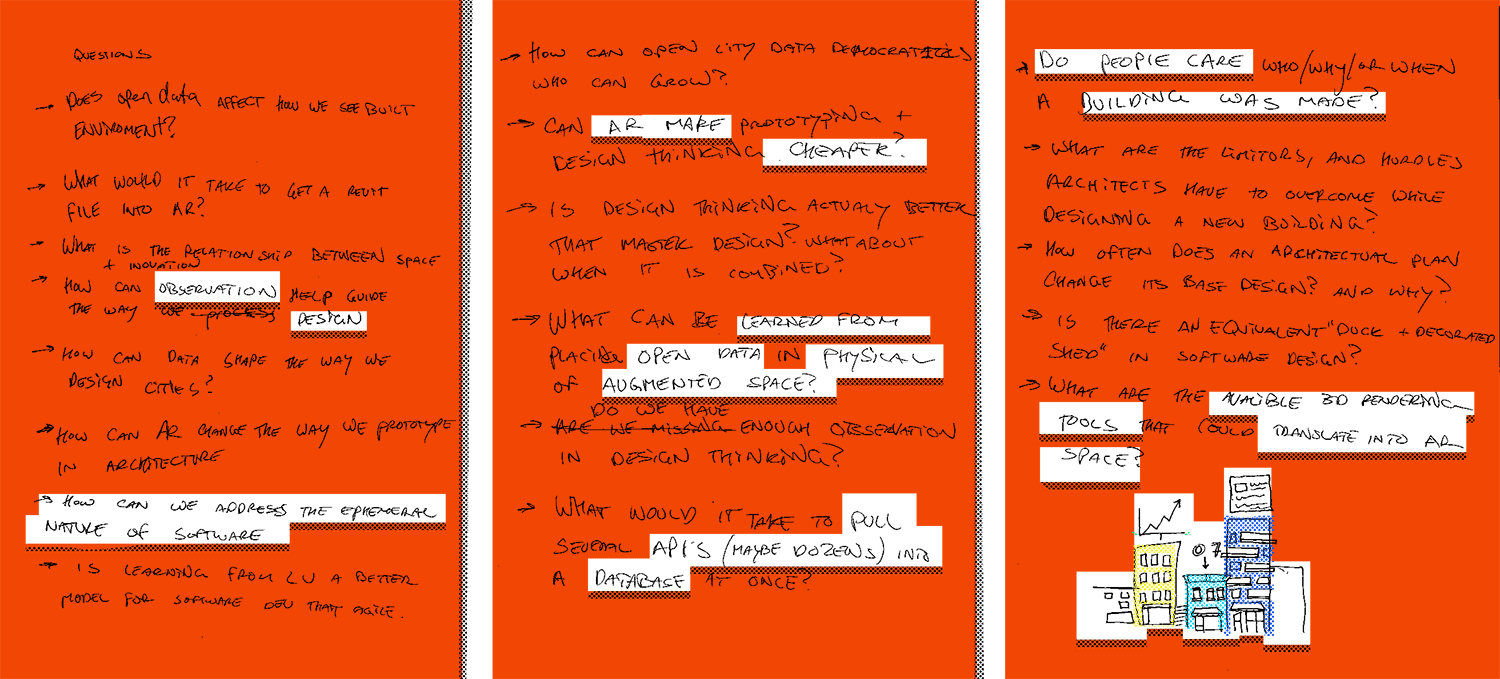 QUESTIONS
→ DOES open data AFFECT HOW WE SEE BUILT
ENVIROMENT?
→ WHAT WOULD IT TAKE TO GET A REVIT
FILE INTO AR?
→ WHAT IS THE RELATIONSHIP BETWEEN SPACE
+ INOVATION
→ HOW CAN OBSERVATION HELP GUIDE
THE WAY WE PROCESS DESIGN
→ HOW CAN DATA SHAPE THE WAY WE
DESIGN CITIES?
→ HOW CAN AR CHANGE THE WAY WE PROTOTYPE
IN ARCHITECTURE
→ HOW CAN WE ADDRESS THE EPHEMERAL
NATURE OF SOFTWARE
→ IS LEARNING FROM LV A BETTER
MODEL FOR SOFTWARE DEV THAT AGILE.
→ HOW CAN OPEN CITY DATA DEMOCRATIZES
WHO CAN GROW?
→ CAN AR MAKE PROTOTYPING +
DESIGN THINKING CHEAPER?
→ IS DESIGN THINKING ACTUALY BETTER
THAT MASTER DESIGN? WHAT ABOUT
WHEN IT IS COMBINED?
→ WHAT CAN BE LEARNED FROM
PLACING OPEN DATA IN PHYSICAL
OF AUGMENTED SPACE?
DO WE HAVE
→ ARE WE MISSING ENOUGH OBSERVATION
IN DESIGN THINKING?
→ WHAT WOULD IT TAKE TO PULL
SEVERAL API'S (MAYBE DOZENS) INTO
A DATABASE AT ONCE?
→ DO PEOPLE CARE WHO/WHY/OR WHEN
A BUILDING WAS MADE?
→ WHAT ARE THE LIMITORS, AND HURDLES
ARCHITECTS HAVE TO OVERCOME WHILE
DESIGNING A NEW BUILDING?
→ HOW OFTEN DOES AN ARCHITECTUAL PLAN
CHANGE ITS BASE DESIGN? AND WHY?
→ IS THERE AN EQUIVALENT "DUCK + DECORATED
SHED" IN SOFTWARE DESIGN?
→ WHAT ARE THE AVALIBLE 3D RENDERING
TOOLS THAT COULD TRANSLATE INTO AR
SPACE?